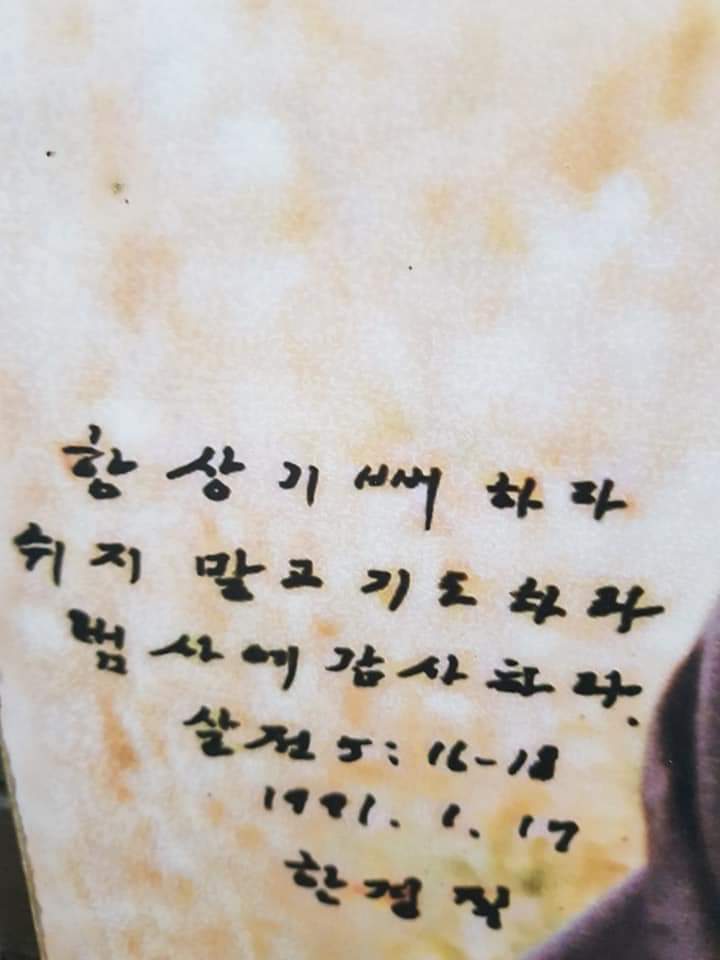 항상 기뻐하라
쉬지 말고 기도하라
범사에 감사하라.
살전 5:16-18
1991. 1. 17
한경직